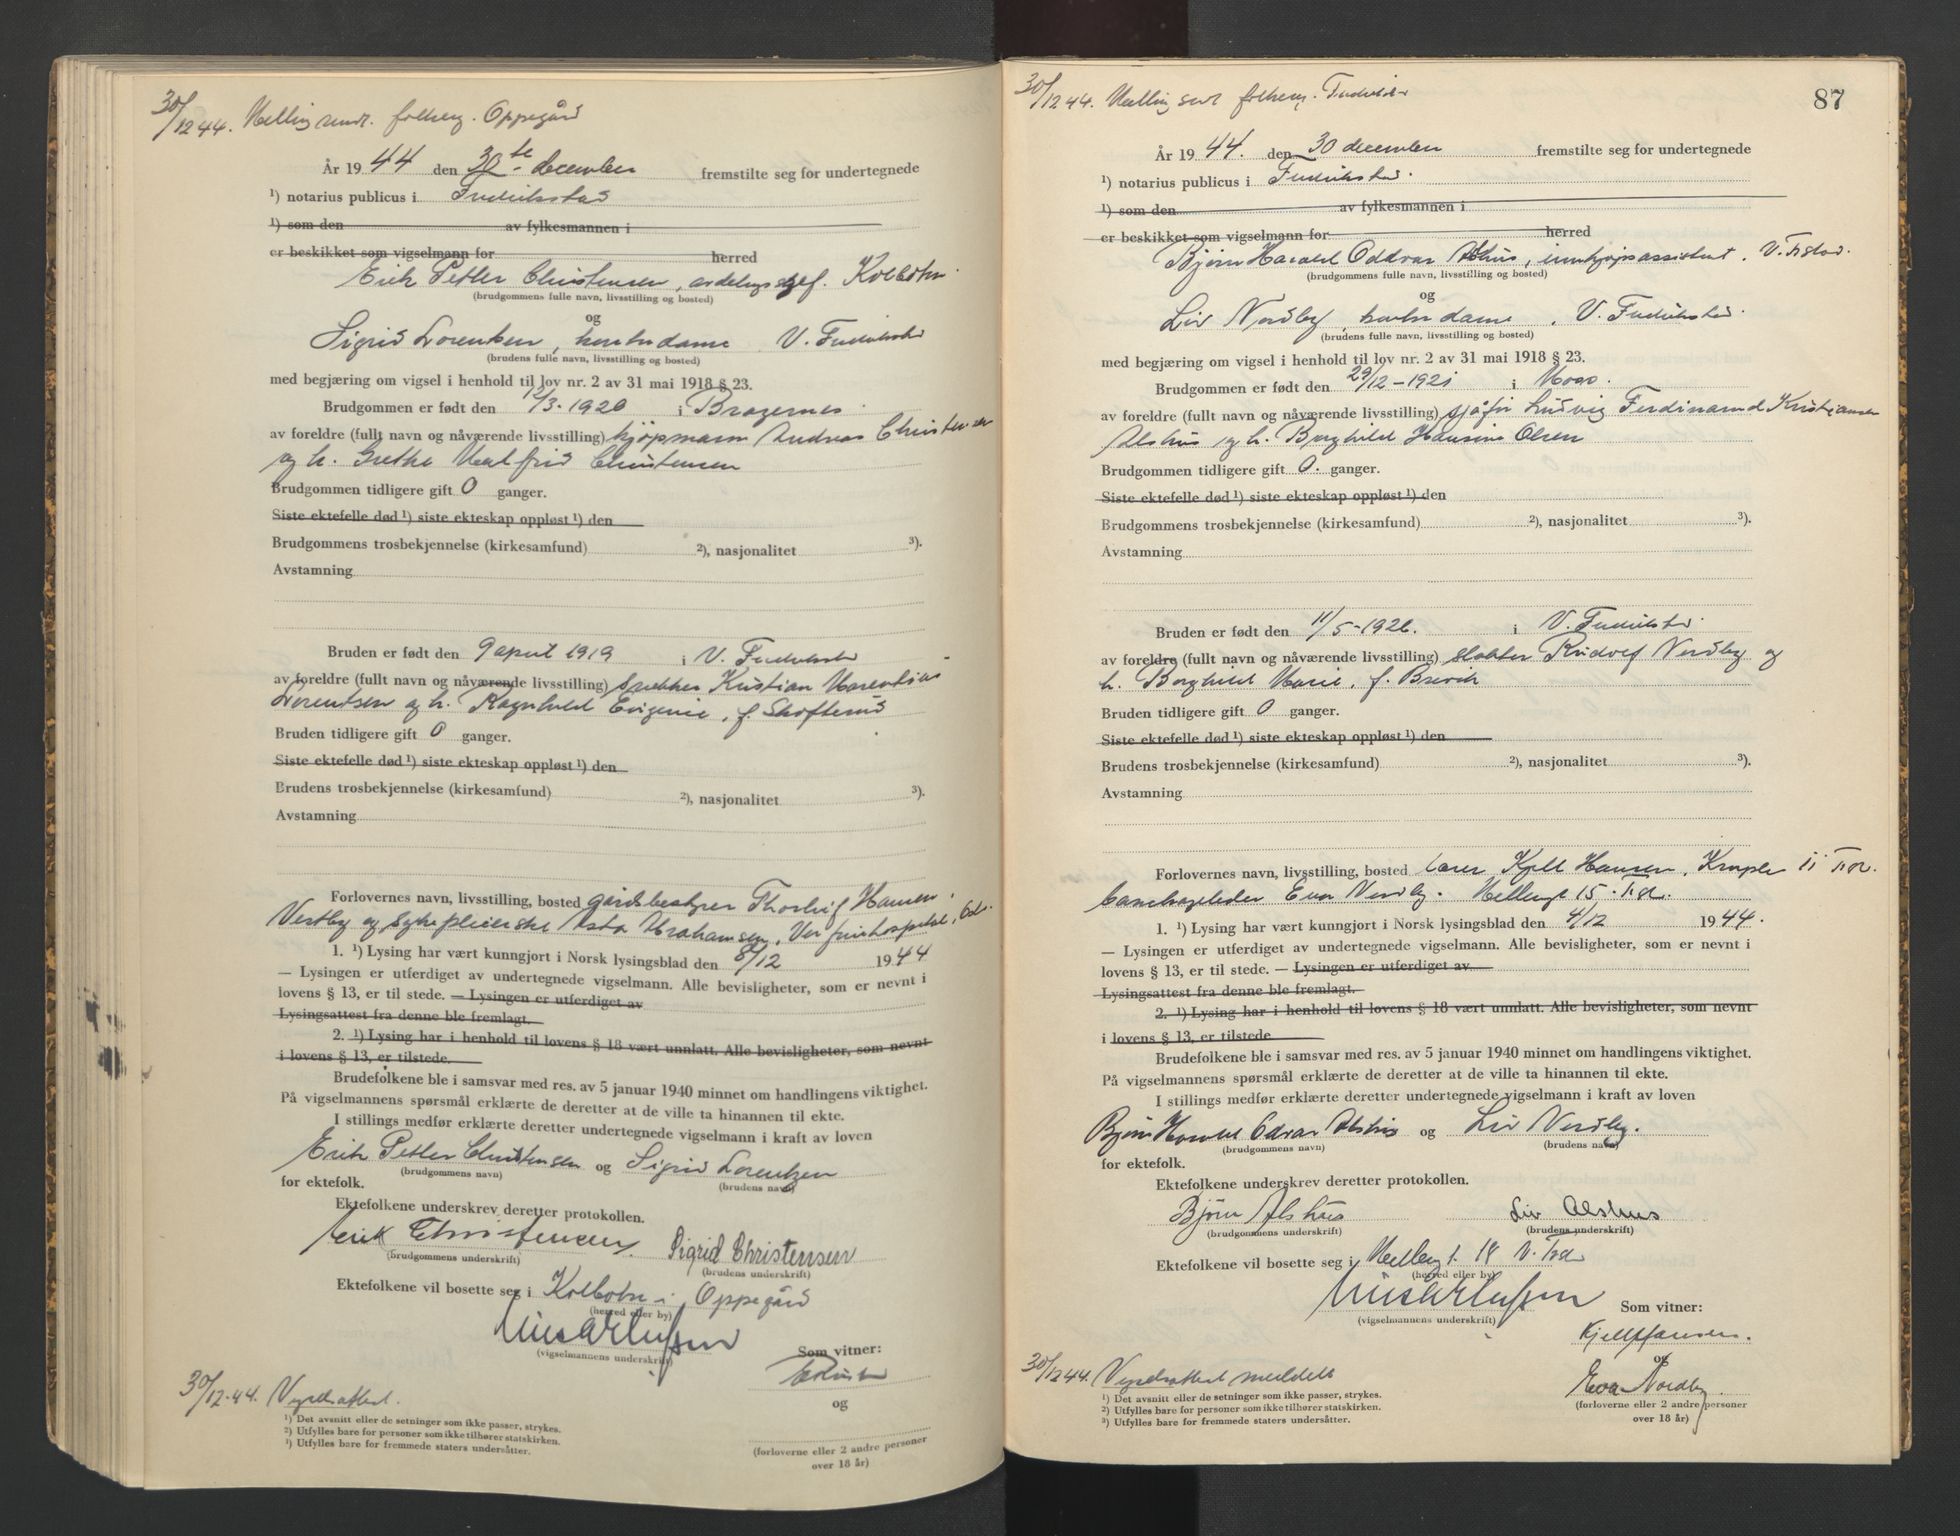 30/12 44. Melding sendt folkereg. Oppegård
År 1944 den 30te december fremstilte seg for undertegnede
¹) notarius publicus i Fredrikstad
¹) som den av fylkesmannen i
er beskikket som vigselmann for herred
Erik Petter Christensen, avdelingssjef. Kolbotn.
(brudgommens fulle navn, livsstilling og bosted)
og
Sigrid Lorentzen, kontordame V. Fredrikstad
(brudens fulle navn, livsstilling og bosted)
med begjæring om vigsel i henhold til lov nr. 2 av 31 mai 1918 § 23.
Brudgommen er født den 12/3-1920 i Bragernes.
av foreldre (fullt navn og nåværende livsstilling) kjøpmann Andreas Christensen
og h. Grethe Valfrid Christensen
Brudgommen tidligere gift 0 ganger.
Siste ektefelle død ¹) siste ekteskap oppløst ¹) den
Brudgommens trosbekjennelse (kirkesamfund) ²), nasjonalitet ³).
Avstamning
Bruden er født den 9 april 1919 i V. Fredrikstad
av foreldre (fullt navn og nåværende livsstilling) snekker Kristian Marentius
Lorentsen og h. Ragnhild Evigenie, f. Skofterud
Bruden tidligere gift 0 ganger.
Siste ektefelle død ¹) siste ekteskap oppløst ¹) den
Brudens trosbekjennelse (kirkesamfund) ²), nasjonalitet ³).
Avstamning
Forlovernes navn, livsstilling, bosted gårdsbestyrer Thorleif Hansen.
Vestby og sykepleierske Asta Abrahamsen,
1. ¹) Lysing har vært kunngjort i Norsk lysingsblad den 8/12 1944
— Lysingen er utferdiget av undertegnede vigselmann. Alle bevisligheter, som er nevnt i
lovens § 13, er til stede. — Lysingen er utferdiget av
Lysingsattest fra denne ble fremlagt.
2. ¹) Lysing har i henhold til lovens § 18 vært unnlatt. Alle bevisligheter, som nevnt
i lovens § 13, er tilstede.
Brudefolkene ble i samsvar med res. av 5 januar 1940 minnet om handlingens viktighet.
På vigselmannens spørsmål erklærte de deretter at de ville ta hinannen til ekte.
I stillings medfør erklærte deretter undertegnede vigselmann i kraft av loven
Erik Petter Christensen og Sigrid Lorentzen
(brudgommens navn) (brudens navn)
for ektefolk.
Ektefolkene underskrev deretter protokollen.
Erik Christensen. Sigrid Christensen
(brudgommens underskrift) (brudens underskrift)
Ektefolkene vil bosette seg i Kolbotn i Oppegård
(herred eller by)
(vigselmannens underskrift)
Som vitner:
30/12-44. Vigselsattest.
og
¹) Det avsnitt eller de setninger som ikke passer, strykes.
²) Utfylles bare for personer som ikke tilhører statskirken.
³) Utfylles bare for fremmede staters undersåtter.
(forloverne eller 2 andre personer
over 18 år)
30/12 44. Melding sendt folkereg. Fredrikstad
87
År 1944. den 30 december fremstilte seg for undertegnede
¹) notarius publicus i Fredrikstad.
¹) som den av fylkesmannen i
er beskikket som vigselmann for herred
Bjørn Harald Oddvar Alshus, innkjøpsassistent. V. Fr.stad.
(brudgommens fulle navn, livsstilling og bosted)
og
Liv Nordby, kontordame. V. Fredrikstad.
(brudens fulle navn, livsstilling og bosted)
med begjæring om vigsel i henhold til lov nr. 2 av 31 mai 1918 § 23.
Brudgommen er født den 29/12-1921 i Moss.
av foreldre (fullt navn og nåværende livsstilling) sjåfør Ludvig Ferdinamd Kristiansen
Alshus og h. Borghild Hansine Olsen
Brudgommen tidligere gift 0. ganger.
Siste ektefelle død ¹) siste ekteskap oppløst ¹) den
Brudgommens trosbekjennelse (kirkesamfund) ²), nasjonalitet ³).
Avstamning
Bruden er født den 11/5-1926. i V. Fredrikstad.
av foreldre (fullt navn og nåværende livsstilling) slakter Rudolf Nordby og
h. Borghild Marie, f. Brevik
Bruden tidligere gift 0 ganger.
Siste ektefelle død ¹) siste ekteskap oppløst ¹) den
Brudens trosbekjennelse (kirkesamfund) ²), nasjonalitet ³).
Avstamning
Forlovernes navn, livsstilling, bosted Kjell Hansen,
Eva Nordby. 15.
1. ¹) Lysing har vært kunngjort i Norsk lysingsblad den 4/12 1944.
— Lysingen er utferdiget av undertegnede vigselmann. Alle bevisligheter, som er nevnt i
lovens § 13, er til stede. — Lysingen er utferdiget av
Lysingsattest fra denne ble fremlagt.
2. ¹) Lysing har i henhold til lovens § 18 vært unnlatt. Alle bevisligheter, som nevnt
i lovens § 13, er tilstede
Brudefolkene ble i samsvar med res. av 5 januar 1940 minnet om handlingens viktighet.
På vigselmannens spørsmål erklærte de deretter at de ville ta hinannen til ekte.
I stillings medfør erklærte deretter undertegnede vigselmann i kraft av loven
Bjørn Harald Odvar Alshus og Liv Nordby.
(brudgommens navn) (brudens navn)
for ektefolk.
Ektefolkene underskrev deretter protokollen.
Bjørn Alshus Liv Alshus
(brudgommens underskrift) (brudens underskrift)
Ektefolkene vil bosette seg i 18 V.
(herred eller by)
(vigselmannens underskrift)
Som vitner:
Kjell Hansen.
og
30/12 44. Vigselsattest meddelt
Eva Nordby.
¹) Det avsnitt eller de setninger som ikke passer, strykes.
²) Utfylles bare for personer som ikke tilhører statskirken.
³) Utfylles bare for fremmede staters undersåtter.
(forloverne eller 2 andre personer
over 18 år)